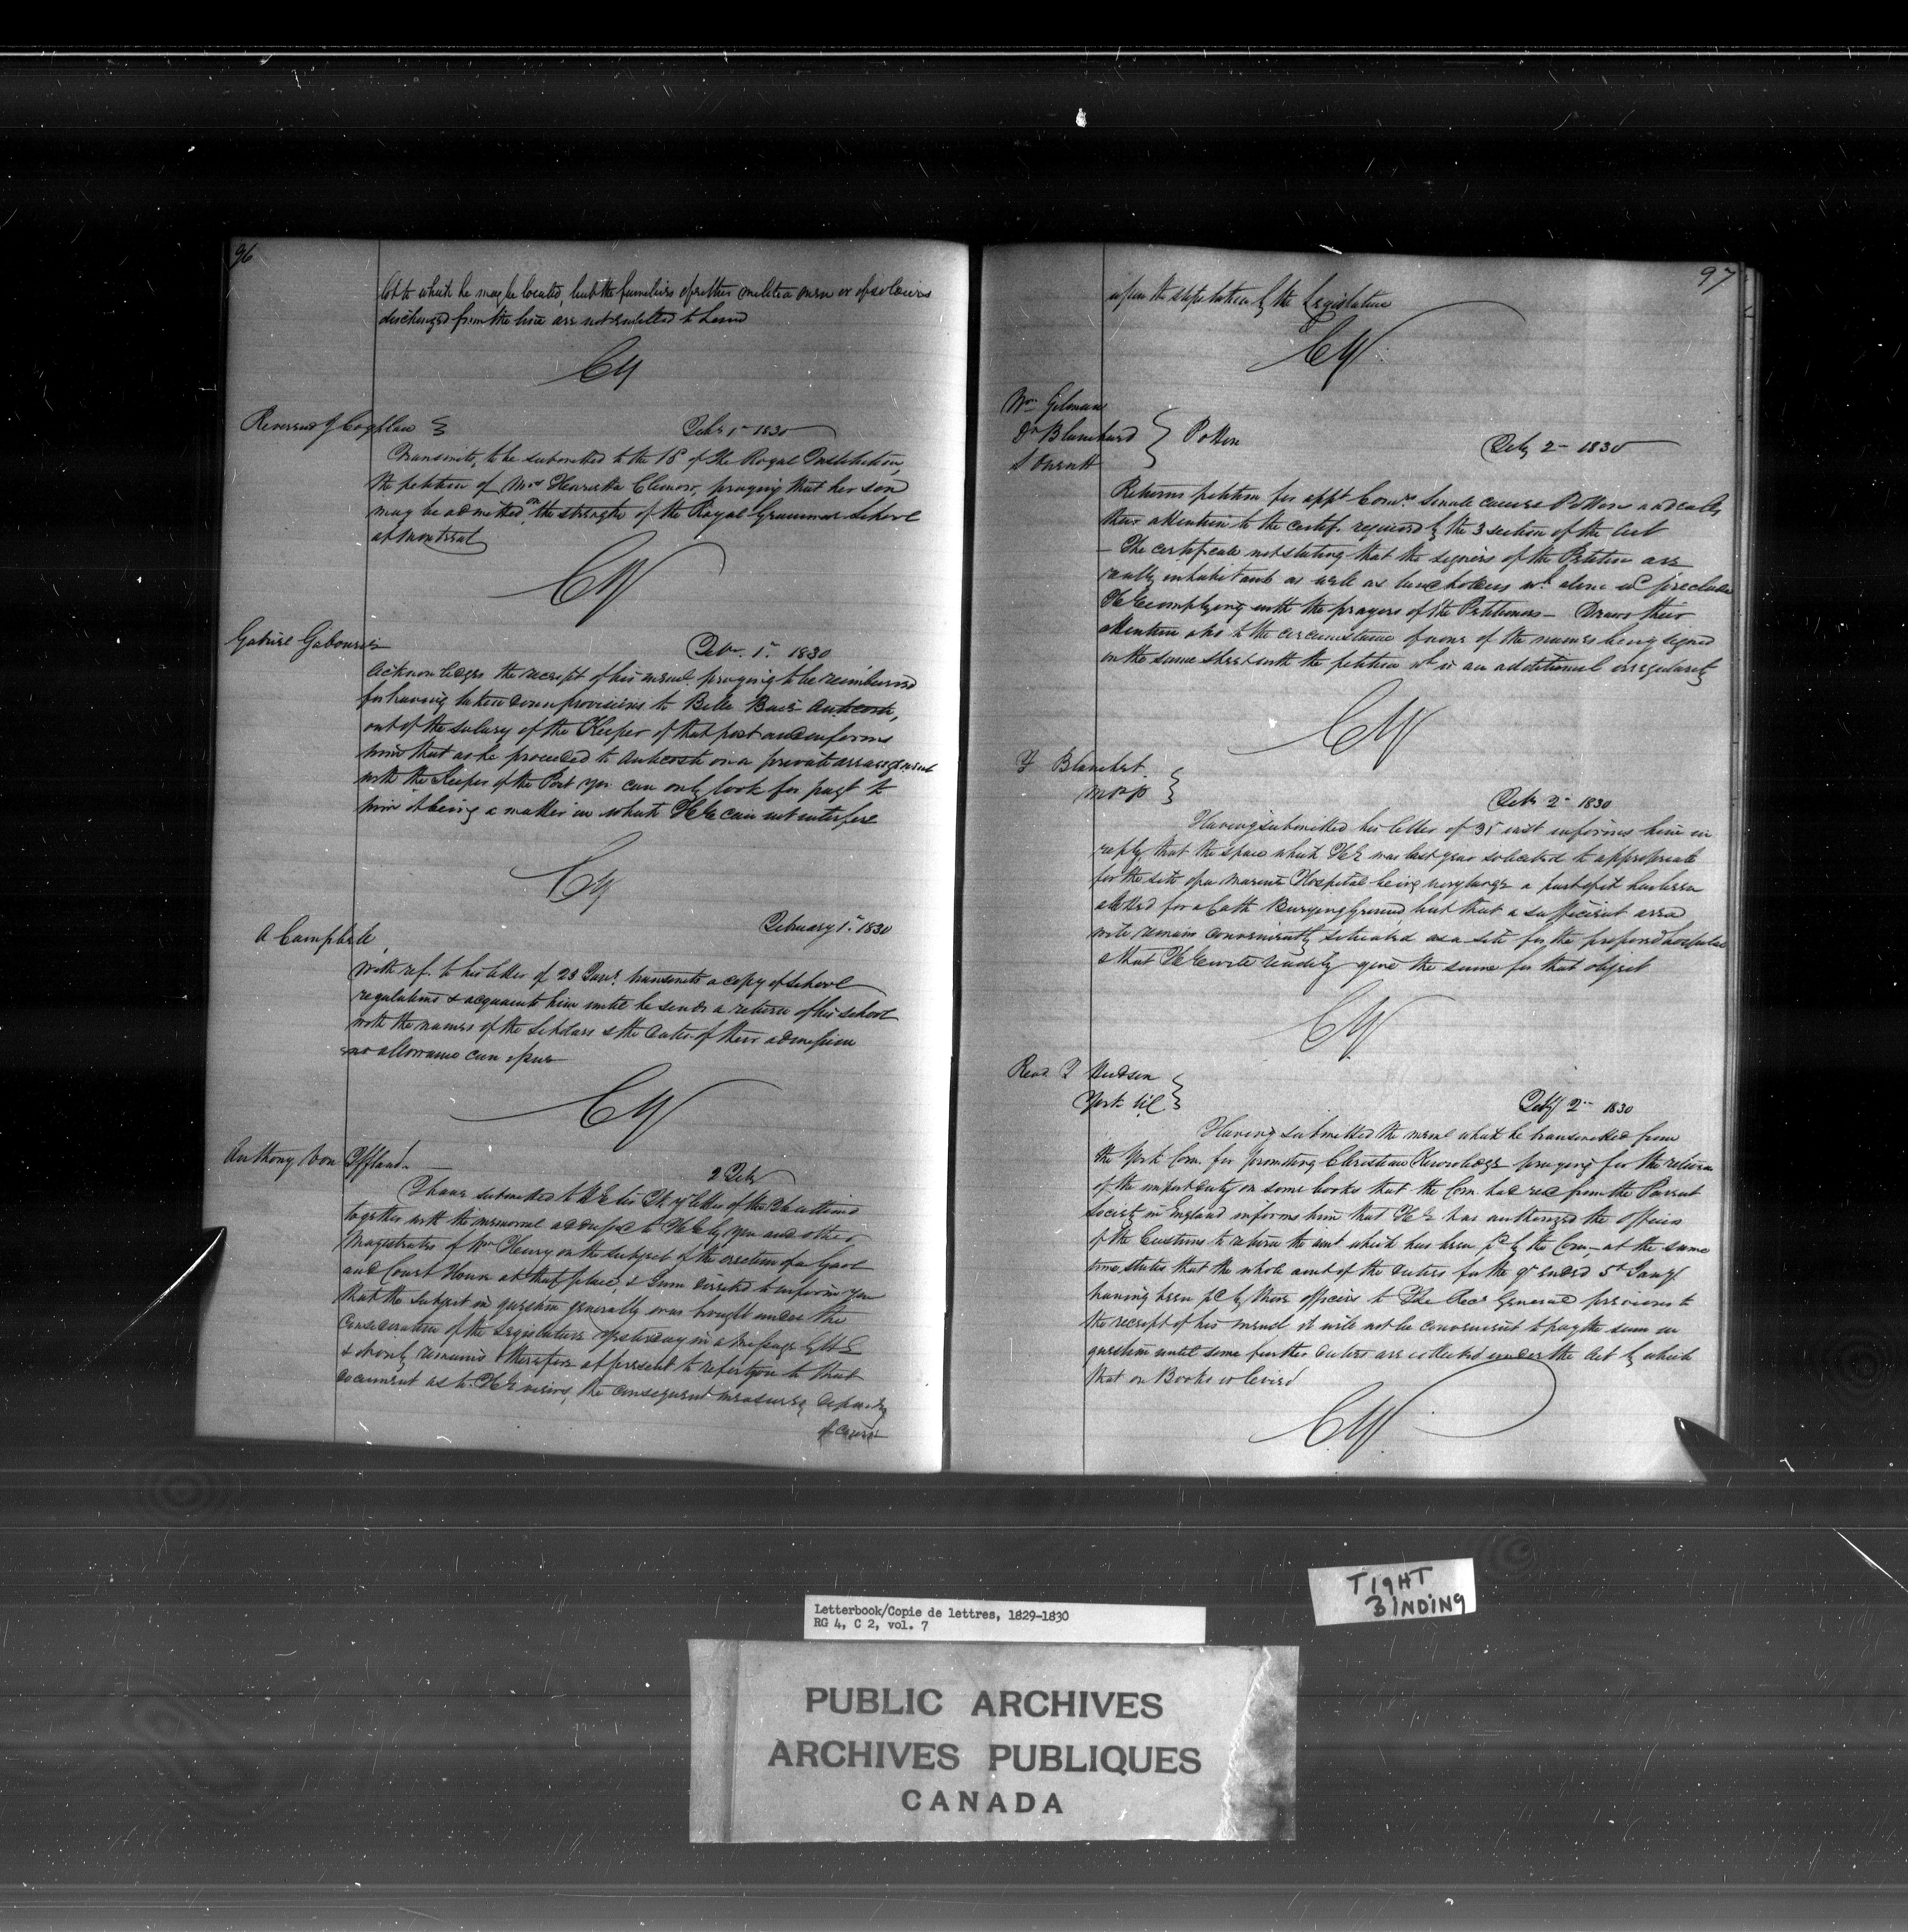 96
lot to which he may be located, but the families of other militia men or of soldiers
discharged from the line are not entitled to Land
CY
Reverend J Coghlan
Feby 1st 1830
Transmits, to be submitted to the Bd of the Royal Institution,
the petition of Mrs Henrietta Clemow, praying that her son
may be admitted on the strength of the Royal Grammar School
at Montreal
CY
Gabriel Gabouri
Feby. 1st. 1830
Acknowledges the receipt of his meml. praying to be reimbursed
for having taken down provisions to Belle Baie Anticosti,
out of the salary of the Keeper of that post and informs
him that as he proceeded to Anticosti on a private arrangement
with the Keeper of the Post you can only look for payt to
him it being a matter in which HE can not interfere
CY
A Campbell
February 1st. 1830
With ref. to his letter of 23 Jany. transmits a copy of school
regulations & acquaints him until he sends a return of his school
with the names of the Scholars & the dates of their admission
no allowance can issue
CY
Anthony Von Iffland.
2 Feby
I have submitted to HE the letter of the
together with the memorial addressed to HE by you and other
Magistrates of Wm Henry on the subject of the erection of a Gaol
and Court House at that place, & I am directed to inform you
that the subject in question generally was brought under the
consideration of the Legislature yesterday in a message by HE
& it only remains therefore at present to refer you to that
document as to HE views, the consequent measures depending
of course
97
upon the steps taken by the Legislature
CY
Wm Gilman
Dr Blanchard
Potton
Feby 2 - 1830
Returns petition for appt Comrs. Small causes Potton and calls
their attention to the certif. required by the 3 section of the Act
- The certificate not stating that the signers of the Petition are
really inhabitants as well as landholders wh. alone wd preclude
HE complying with the prayers of the Petitioners - Draws their
attention also to the circumstance of none of the names being signed
on the same sheet with the petition wh. is an additional irregularity
CY
F Blanchet.
MPP
Feby 2d 1830
Having submitted his letter of 31st inst informs him in
reply that the space which HE was last year solicited to appropriate
for the site of a Marine Hospital being very large a part of it has been
allotted for a Cath Burying Ground, but that a sufficient area
will remain conveniently situated as a site for the proposed hospital
& that HE will readily give the same for that object
CY
Revd J Hudson
York UC
Feby 2d 1830
Having submitted the meml which he transmitted from
the York Com. for promoting Christian Knowledge praying for the return
of the import duty on some books that the Com. had recd from the Parent
Society in England informs him that HE has authorized the officers
of the Customs to return the amt which has been pd by the Com, - at the same
time states that the whole amt of the duties for the qr ended 5th Jany.
having been pd by those officers to the Recr General previous to
the receipt of his meml it will not be convenient to pay the sum in
question until some further duties are collected under the Act by which
that on Books is levied
CY
TIGHT
BINDING
Letterbook/Copie de lettres, 1829-1830
RG 4, C 2, vol. 7
PUBLIC ARCHIVES
ARCHIVES PUBLIQUES
CANADA